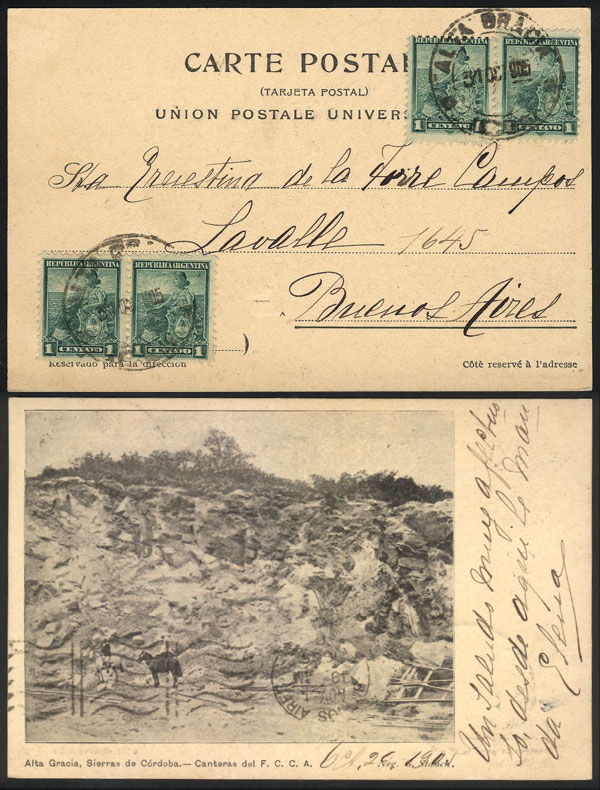 CARTE POSTA
(TARJETA POSTAL)
UNION POSTALE UNIVERS
REPUBLICA ARGENTINA
REPUBLICA ARGENTINA
1 CENTAVO 1
1 CENTAVO 1
ALTA GRACIA
31 OC 905
Sta Ernestina de la Torre Campos
Lavalle 1645
Buenos Aires
REPUBLICA ARGENTINA
REPUBLICA ARGENTINA
1 CENTAVO 1
1 CENTAVO 1
Reservado para la direccion
Côtè reservé à l'adresse
Un saludo muy afectuo
so, desde aqui le man
da Elena
NOS AIRES
NOV
AM
Alta Gracia, Sierras de Córdoba.— Canteras del F. C. C. A.
Oct. 26 1905